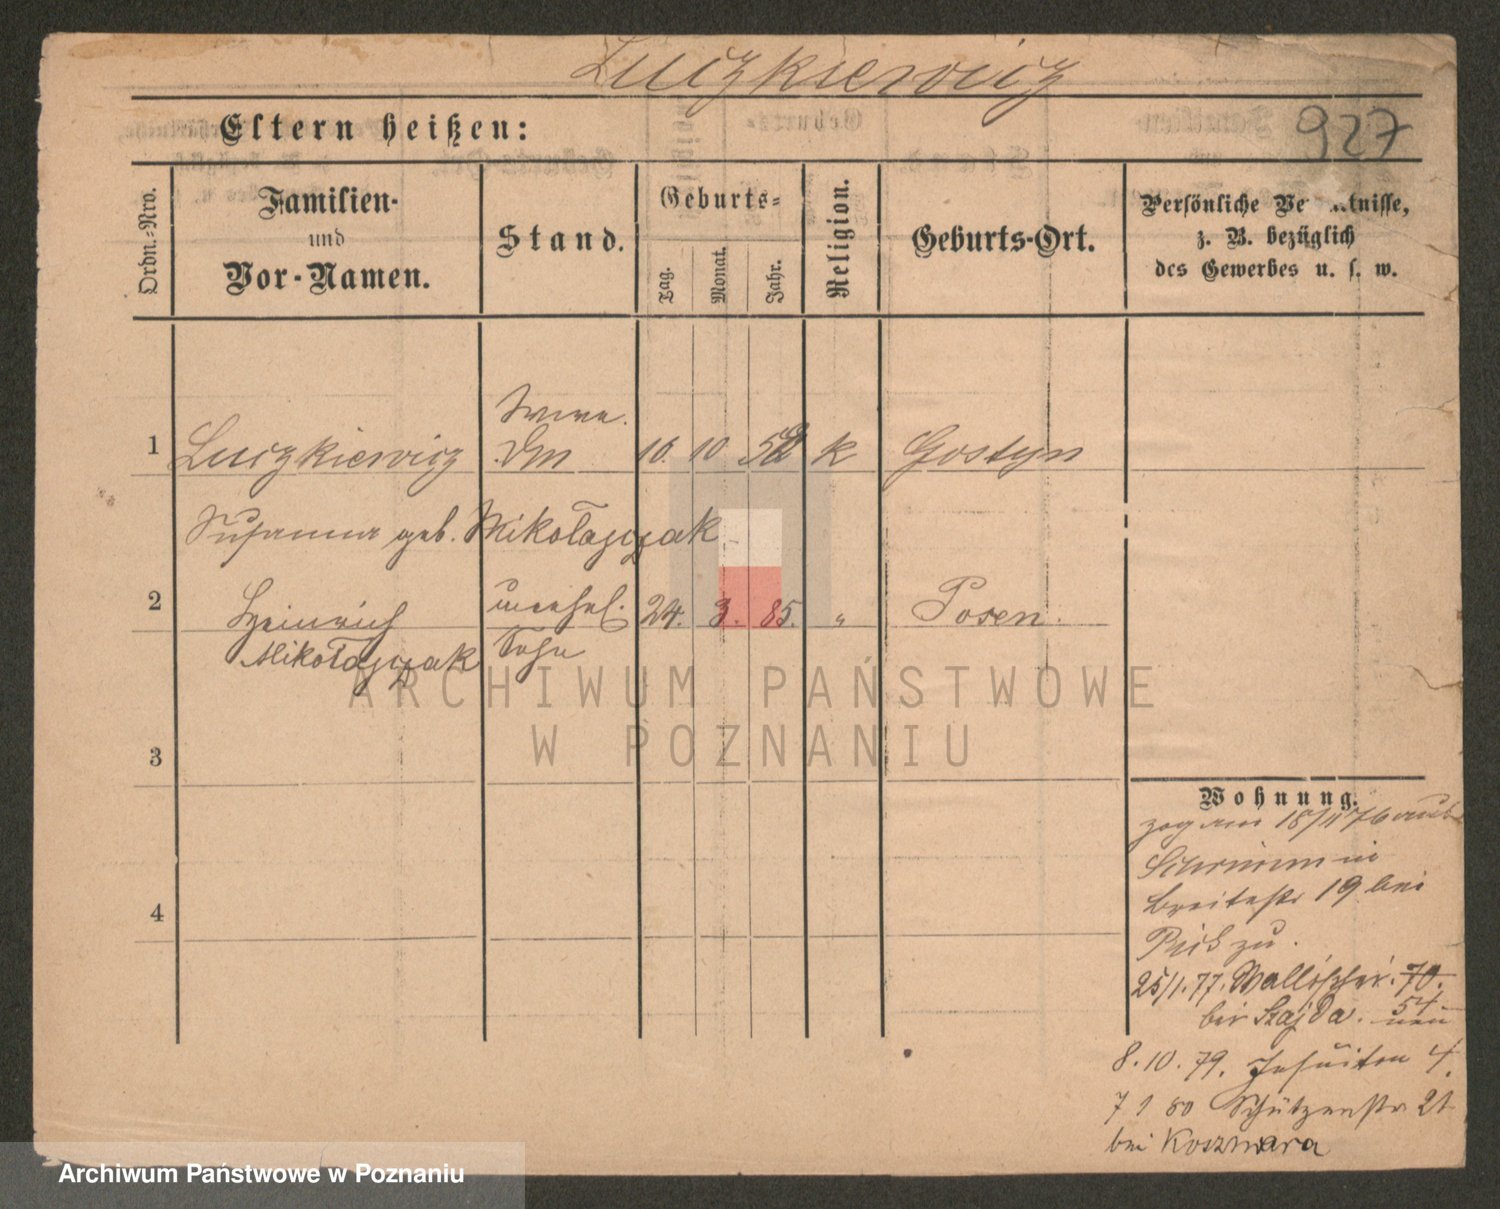 Luczkiewicz
Eltern heißen:
927
Ordn.-Nro.
Familien-
und
Vor-Namen.
Stand.
Geburts-
Tag.
Monat.
Jahr.
Religion.
Geburts-Ort.
Persönliche Ve tnisse,
z. B. bezüglich
des Gewerbes u. s. w.
1 Luczkiewicz 10. k Gostyn
Susanna geb. Mikołajczak
2 Heinrich unehel. 24. 3. 85. " Posen.
Mikołajczak Sohn
ARCHIWUM PAŃSTWOWE
W POZNANIU
3
4
Wohnung.
zog am 18/11 76 aus
Schrimm in
Breitestr 19 bei
zu.
25/1.77. Wallischei. 70.
bei Szajda. 54
neu
8.10.79. Jesuiten 4.
7 1 80 Schützenstr 21
bei Koszmara
Archiwum Państwowe w Poznaniu